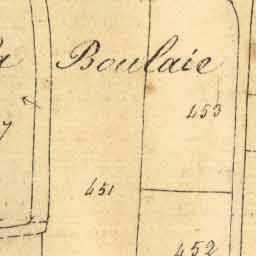 Boulaie
453
451
452